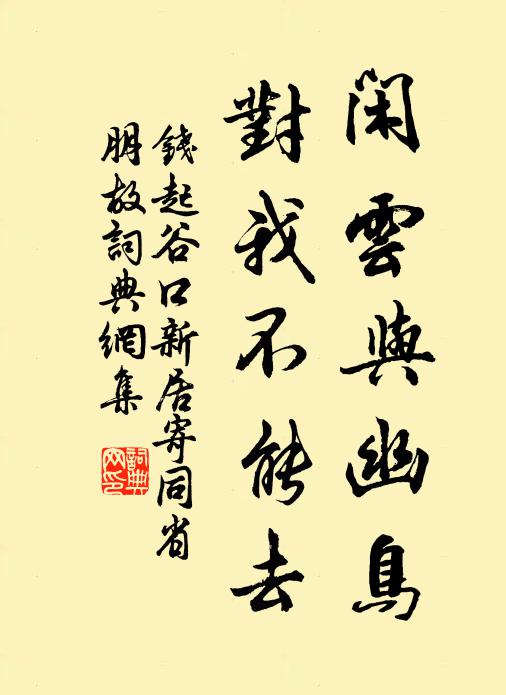 閑雲與幽鳥
對我不能去
錢起谷口新居寄同省
朋故詞典網集
詞典网印